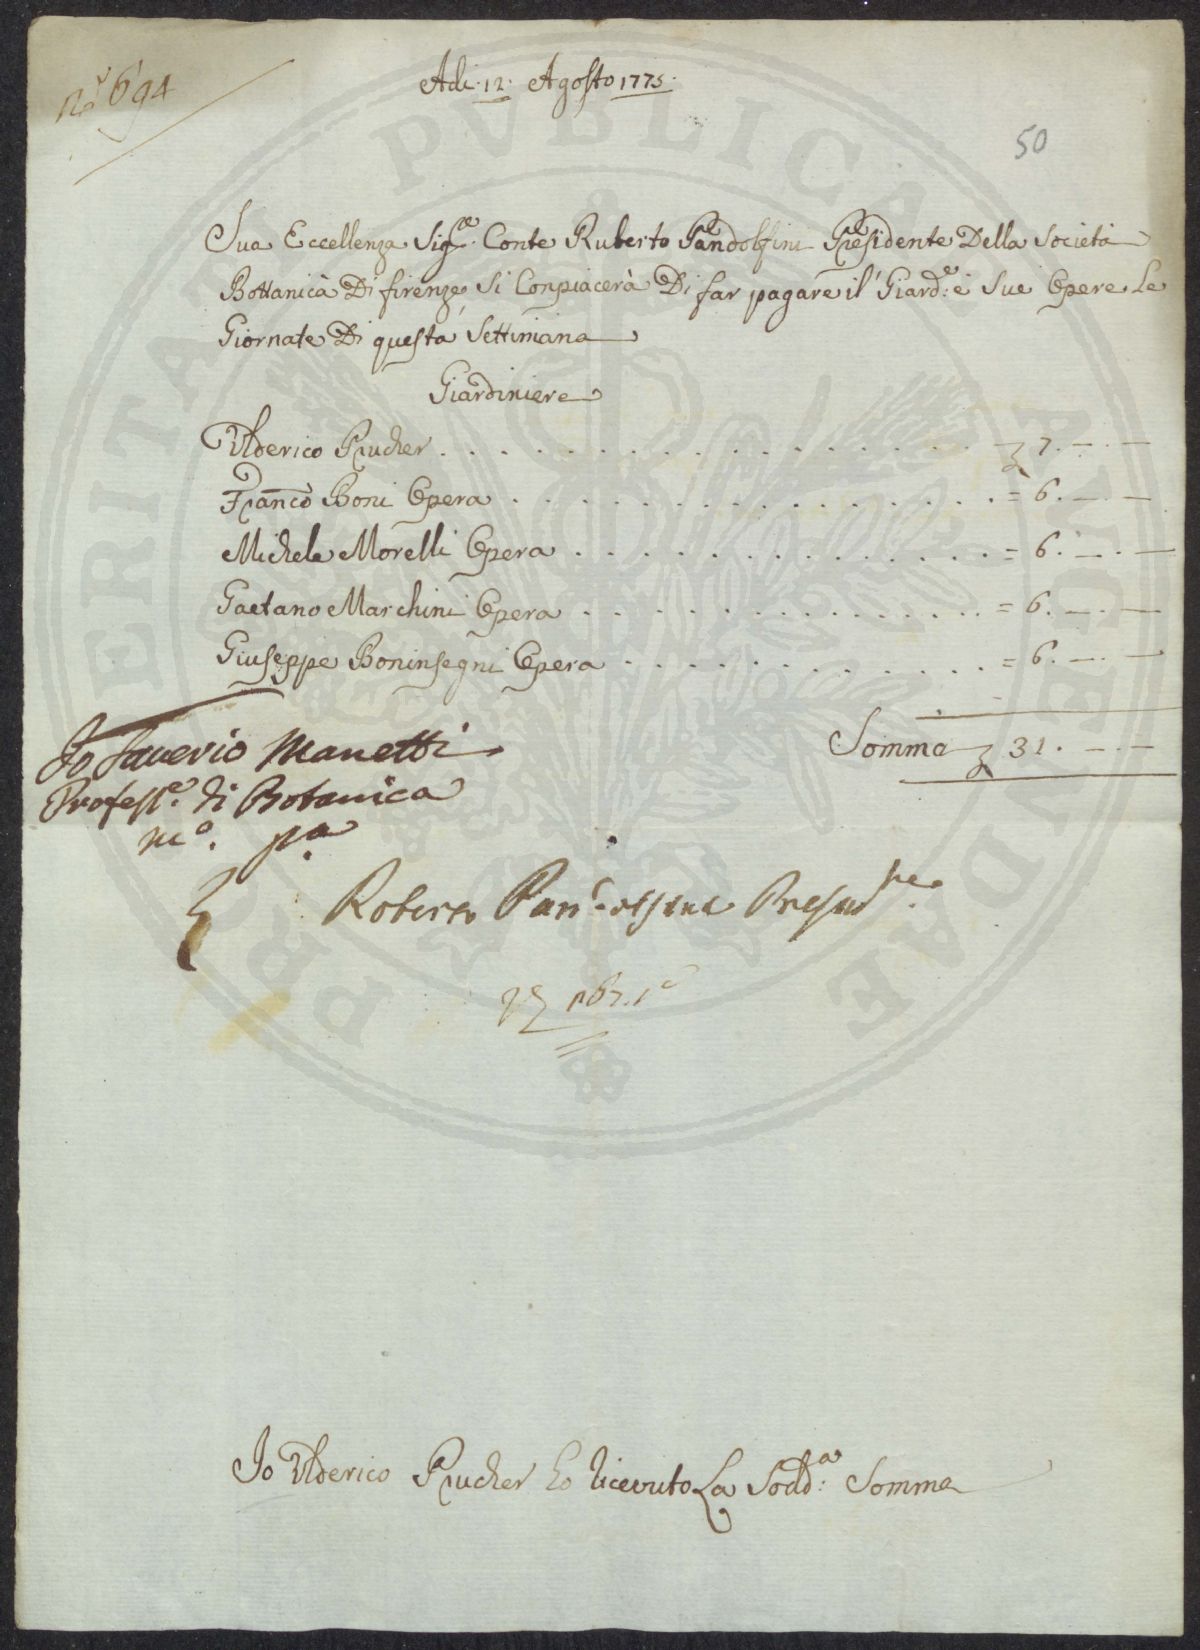 N.° 694
Adi. 12. Agosto 1775.
50
Sua Eccellenza Sig.re Conte Ruberto Pandolfini Presidente Della Società
Bottanica Di firenze, Si Conpiacerà Di far pagare il Giard.e e Sue Opere Le
Giornate Di questa Settimana
Giardiniere
Ulderico Prucher . . . . . . . . . . . . . . . . . . 7. —. —
Franco Boni Opera . . . . . . . . . . . . . . . . = 6. —. —
Michele Morelli Opera . . . . . . . . . . . . . . = 6. —. —
Gaetano Marchini Opera . . . . . . . . . . . . . = 6. —. —
Giuseppe Boninsegni Opera . . . . . . . . . . . = 6. —. —
Somma 31. —. —
Io Saverio Manetti
Profess.e di Botanica
m.o p.a
Roberto Pandolfini Presid.te
Io Ulderico Prucher ho Ricevuto La Sodd.a Somma
PERITANTI PVBLICAE AVCENDAE